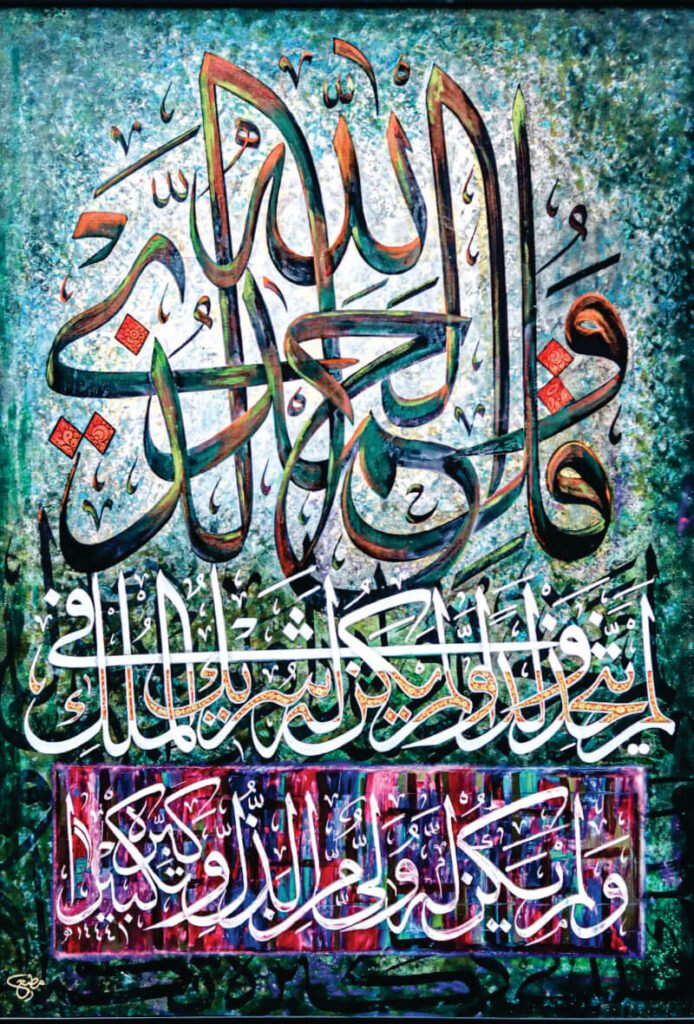 وَقُلِ الْحَمْدُ لِلَّهِ الَّذِي
لَمْ يَتَّخِذْ وَلَدًا وَلَمْ يَكُن لَّهُ شَرِيكٌ فِي الْمُلْكِ
وَلَمْ يَكُن لَّهُ وَلِيٌّ مِّنَ الذُّلِّ وَكَبِّرْهُ تَكْبِيرًا